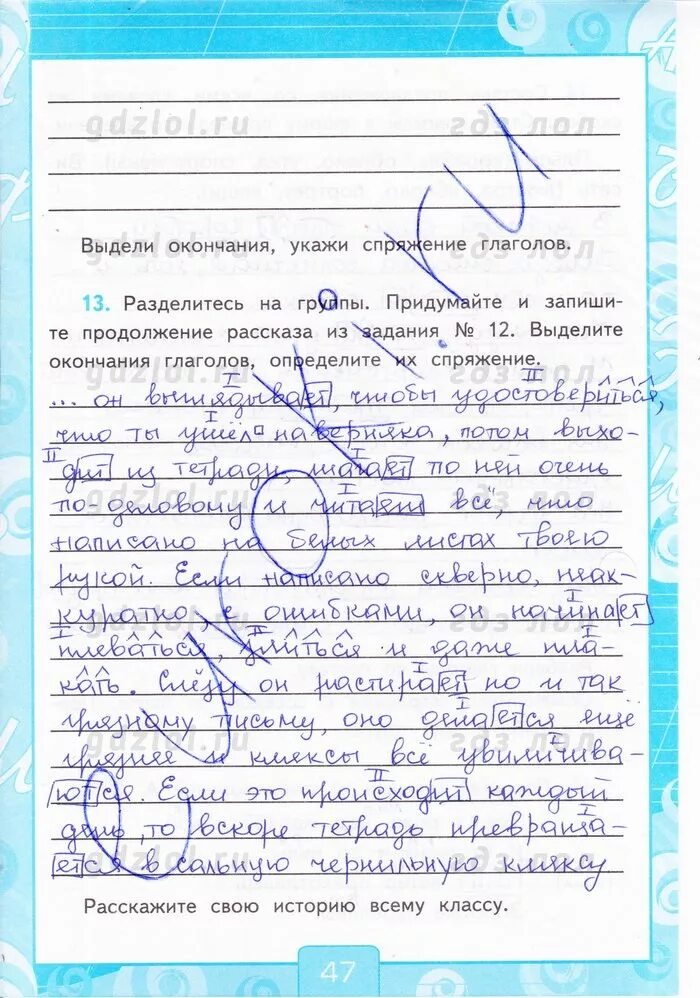 gdzlol.ru гдз лол
Выдели окончания, укажи спряжение глаголов.
13. Разделитесь на группы. Придумайте и запиши-
те продолжение рассказа из задания № 12. Выделите
окончания глаголов, определите их спряжение.
... он выглядывает, чтобы удостовериться,
что ты ушёл наверняка, потом выхо-
дит из тетради, шагает по ней очень
по-деловому и читает всё, что
написано на белых листах твоею
рукой. Если написано скверно, неак-
куратно, с ошибками, он начинает
плеваться, злиться и даже пла-
кать. Слёзы он растирает по и так
грязному письму, оно делается ещё
грязнее и кляксы всё увиличива-
ются. Если это происходит каждый
день, то вскоре тетрадь превраща-
ется в сальную чернильную кляксу
Расскажите свою историю всему классу.
47